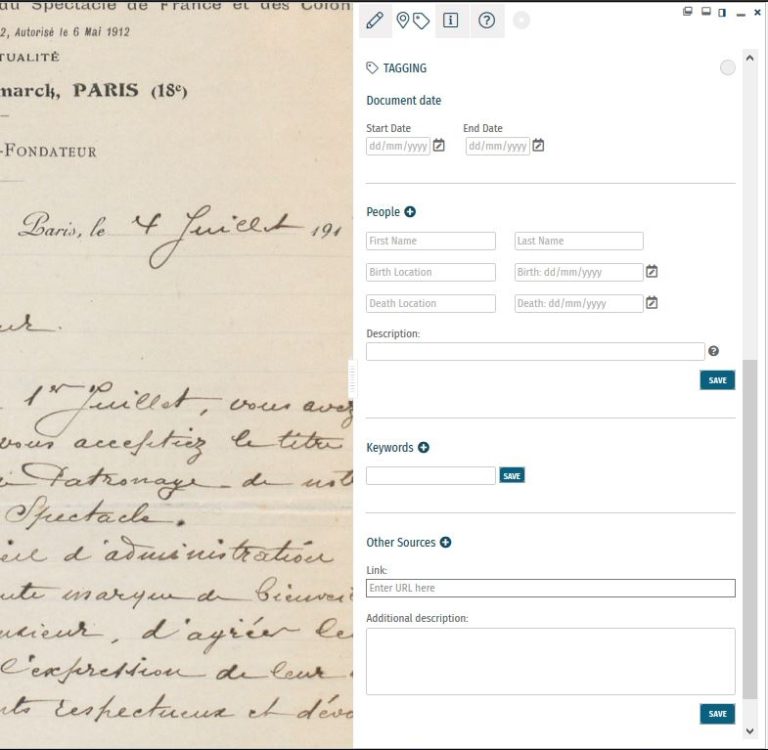 du Spectacle de France et des Colon
2, Autorisé le 6 Mai 1912
TUALITÉ
marck, PARIS (18e)
-FONDATEUR
Paris, le 4 Juillet 191
ur.
1er Juillet, vous avez
vous acceptiez le titre
Patronage de not
Spectacle.
eil d'administration
ute marque de bienvei
nsieur, d'agréer le
l'expression de leur
nts respectueux et dévo
TAGGING
Document date
Start Date End Date
dd/mm/yyyy dd/mm/yyyy
People
First Name Last Name
Birth Location Birth: dd/mm/yyyy
Death Location Death: dd/mm/yyyy
Description:
SAVE
Keywords
SAVE
Other Sources
Link:
Enter URL here
Additional description:
SAVE